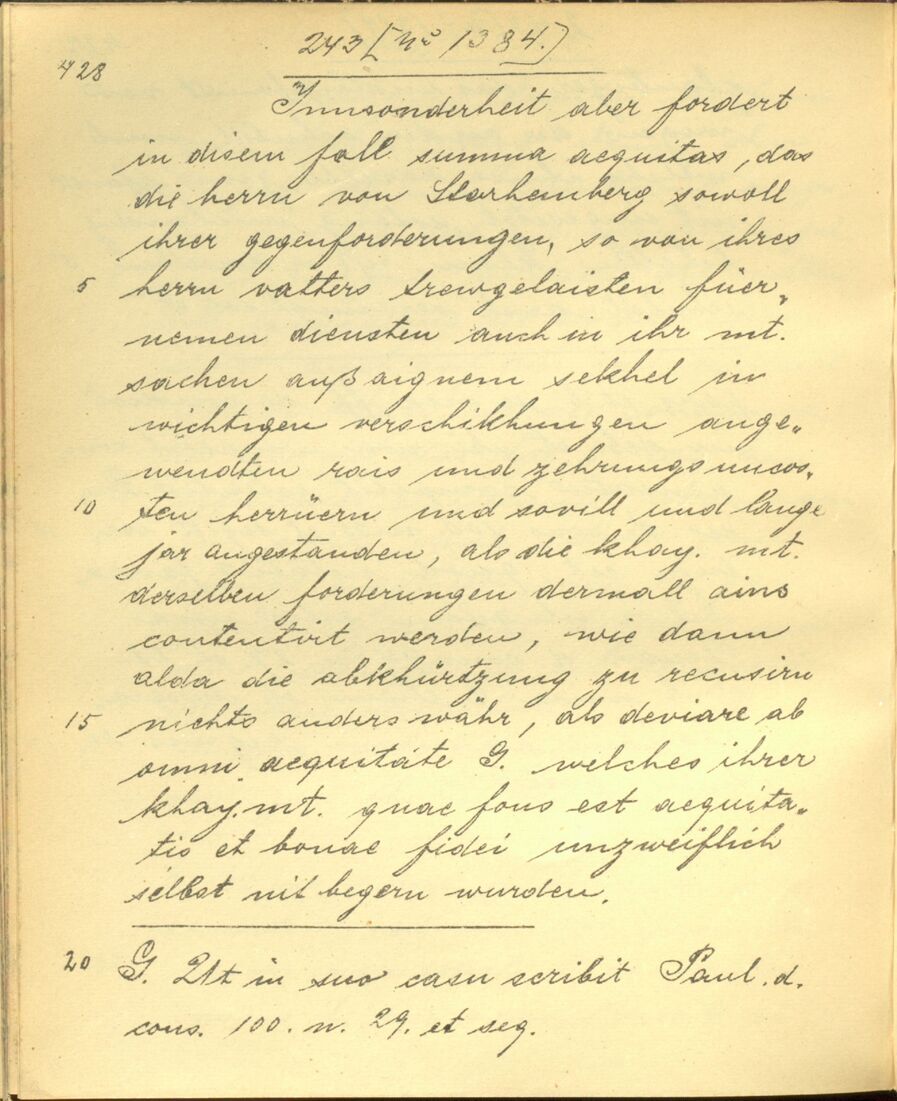 243 [No 1384.]
428
Innsonderheit aber fordert
in disem fall summa aequitas, das
die herrn von Starhemberg sowoll
ihrer gegenforderungen, so von ihres
5 herrn vatters trewgelaisten füer„
nemen diensten auch in ihr mt.
sachen außaignem sekhel in
wichtigen verschikhungen ange„
wendten rais und zehrungsuncos„
10 ten herrüern und sovill und lange
jar angestanden, als die khay. mt.
derselben forderungen dermall ains
contentirt werden, wie dann
alda die abkhürtzung zu recusirn
15 nichts anders währ, als deviare ab
omni aequitate G. welches ihrer
khay. mt. quae fons est aequita„
tis et bonae fidei unzweiflich
selbst nit begern wurden.
20 G. Ut in suo casu scribit Paul. d.
cons. 100. n. 29. et seq.